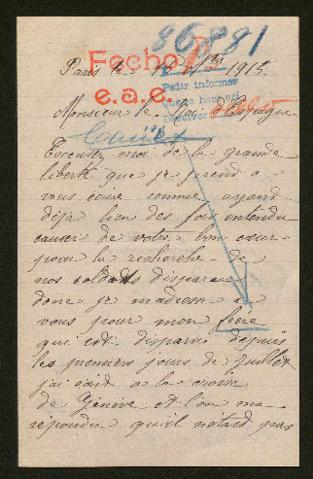 86881
Fecho
e.a.e.
Paris le 1915
Pedir informes
Devolver
Monsieur le Roi d'Espagne
Excusez moi de la grande
liberté que je prend a
vous écrire comme ayand
déja bien des fois entendu
causer de votre bon cœur
pour la recherche de
nos soldats disparus
donc je m'adresse a
vous pour mon frère
qui est disparu depuis
les premiers jours de Juillet
j'ai écrit a la croix
de Genève et l'on m'a
répondu qu'il n'étard pas